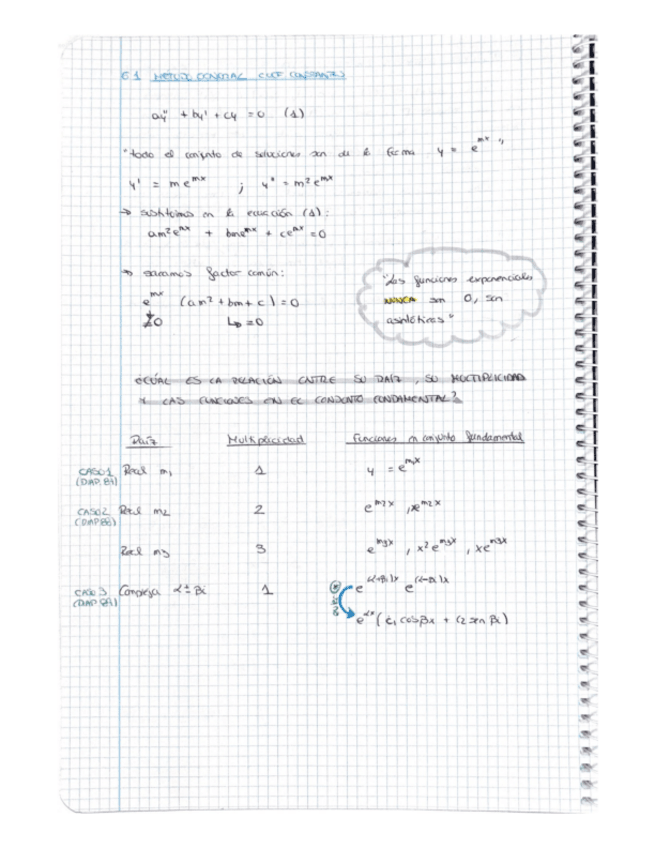 6.1 MÉTODO GENERAL COEF CONSTANTES
ay" + by' + cy = 0 (1)
"todo el conjunto de soluciones son de la forma y = e^mx"
y' = me^mx ; y" = m²e^mx
→ sustituimos en la ecuación (1):
am²e^mx + bme^mx + ce^mx = 0
→ sacamos factor común:
e^mx (am² + bm + c) = 0
≠0 ↳ =0
"Las funciones exponenciales
NUNCA son 0, son
asintóticas"
¿CUÁL ES LA RELACIÓN ENTRE SU RAÍZ, SU MULTIPLICIDAD
Y LAS FUNCIONES EN EL CONJUNTO FUNDAMENTAL?
Raíz Multiplicidad Funciones en conjunto fundamental
CASO 1 Real m₁ 1 y = e^m₁x
CASO 2 Real m₂ 2 e^m₂x , xe^m₂x
Real m₃ 3 e^m₃x , x²e^m₃x , xe^m₃x
CASO 3 Compleja α ± βi 1 e^(α+βi)x e^(α-βi)x
e^αx (c₁ cos βx + c₂ sen βx)